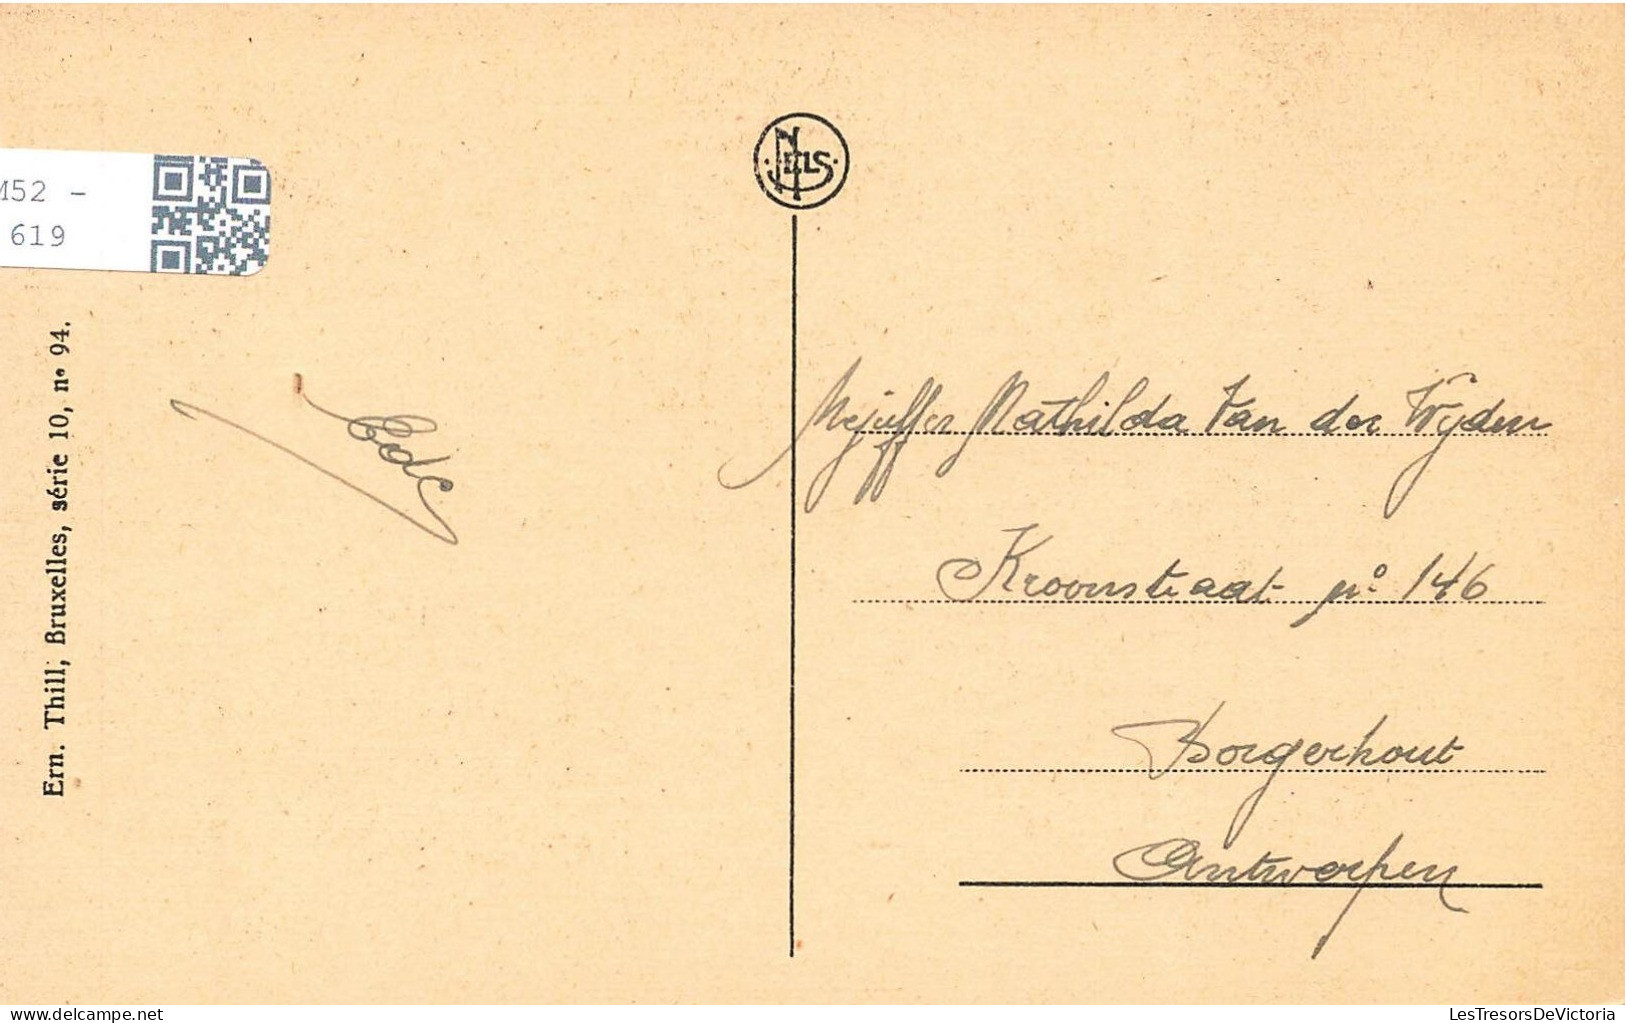 NELS
M52 -
619
Ern. Thill, Bruxelles, série 10, n° 94.
Mejuffer Mathilda Van der Wyden
Kroonstraat n° 146
Borgerhout
Antwerpen
www.delcampe.net
LesTresorsDeVictoria